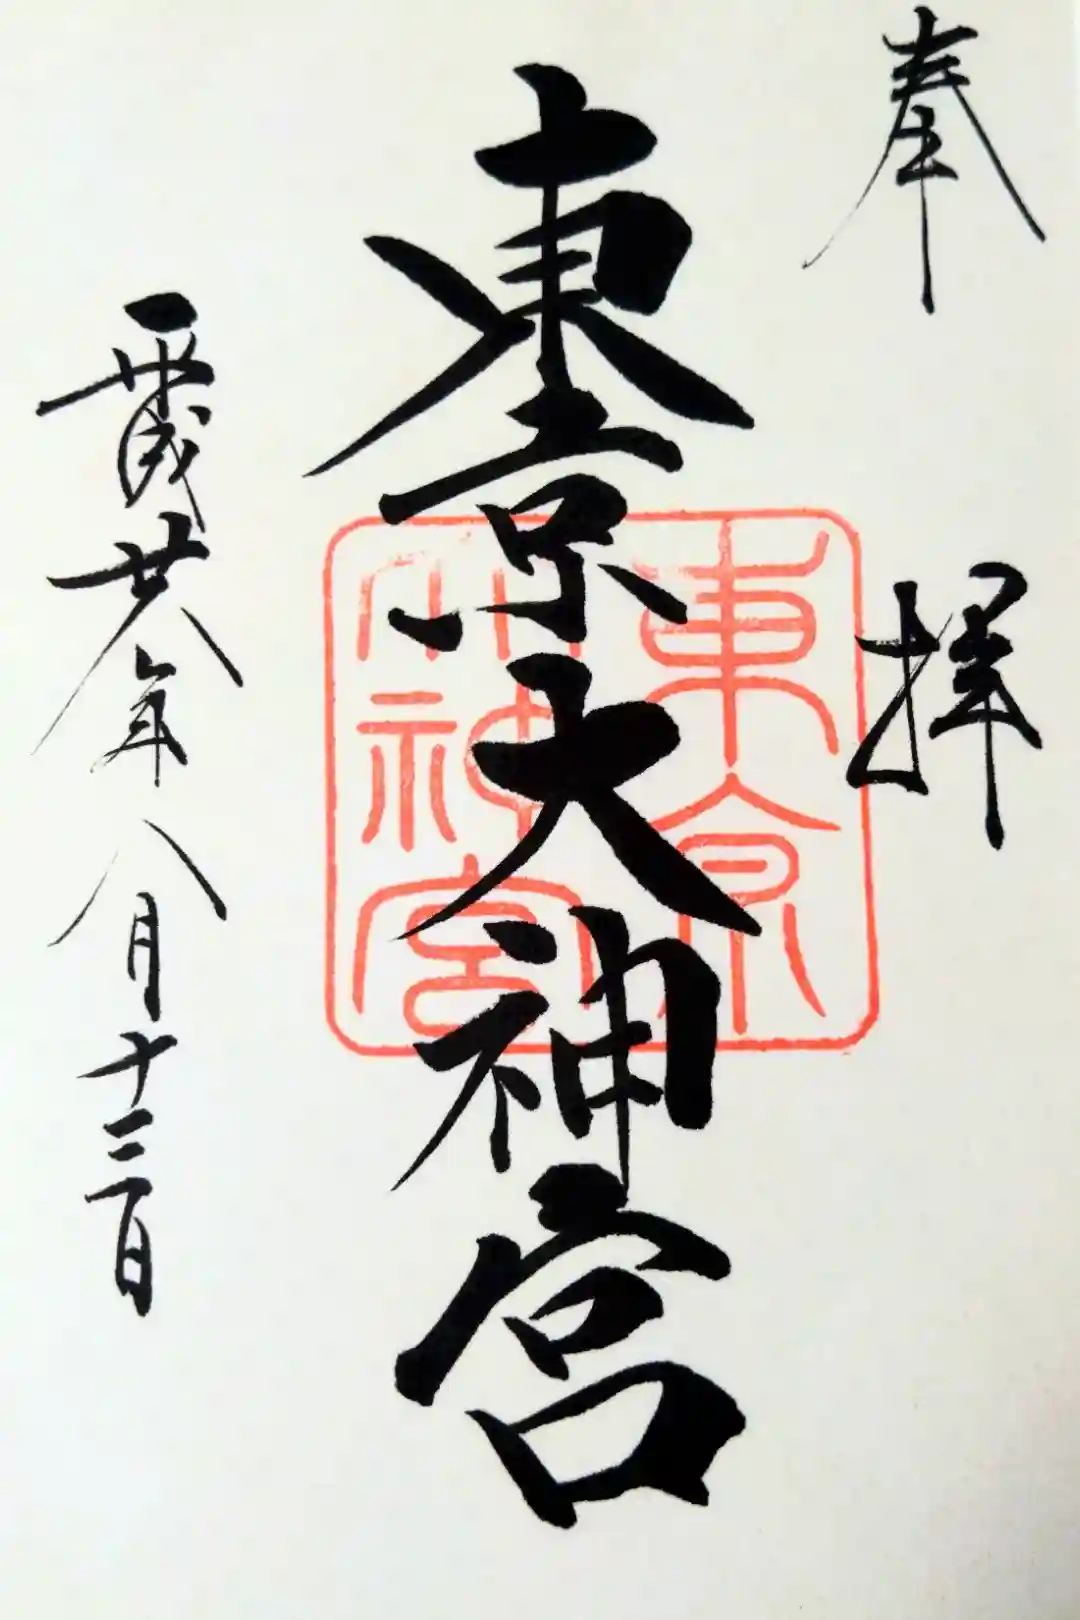 奉拝
東京大神宮
東京大神宮
平成廿八年八月十三日